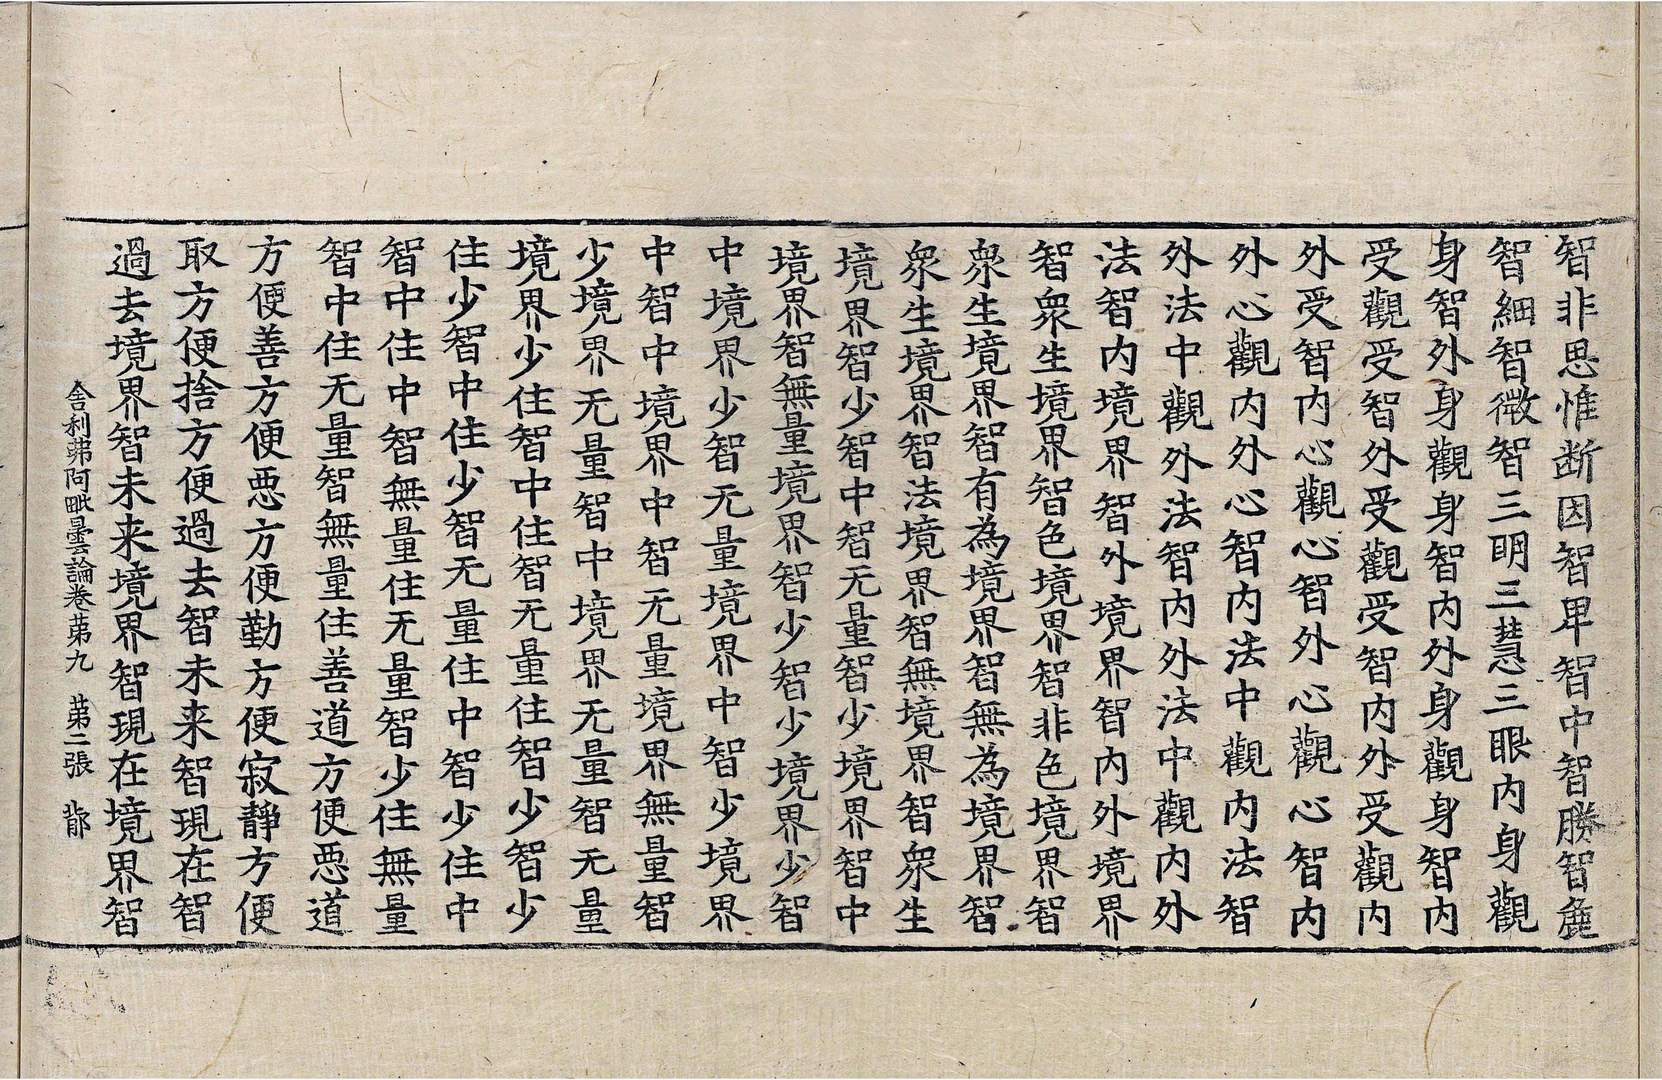 智非思惟断因智卑智中智勝智麁
智細智微智三明三慧三眼内身觀
身智外身觀身智内外身觀身智内
受觀受智外受觀受智内外受觀内
外受智内心觀心智外心觀心智内
外心觀内外心智内法中觀内法智
外法中觀外法智内外法中觀内外
法智内境界智外境界智内外境界
智衆生境界智色境界智非色境界智
衆生境界智有為境界智無為境界智
衆生境界智法境界智無境界智衆生
境界智少智中智无量智少境界智中
境界智無量境界智少智少境界少智
中境界少智无量境界中智少境界
中智中境界中智无量境界無量智
少境界无量智中境界无量智无量
境界少住智中住智无量住智少智少
住少智中住少智无量住中智少住中
智中住中智無量住无量智少住無量
智中住无量智無量住善道方便悪道
方便善方便悪方便勤方便寂靜方便
取方便捨方便過去智未来智現在智
過去境界智未来境界智現在境界智
舍利弗阿毗曇論卷第九 第二張